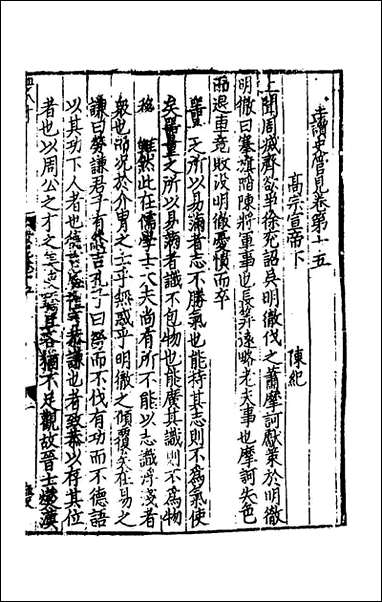 讀史管見卷第十五
陳紀
高宗宣帝下
上聞周滅齊欲爭徐兗詔吳明徹伐之蕭摩訶獻策於明徹
明徹曰搴旗陷陣將軍事也長筭遠略老夫事也摩訶失色
而退軍竟敗沒明徹憂憤而卒
器量之所以易滿者志不勝氣也能持其志則不為氣使
矣器量之所以易滿者識不包物也能廣其識則不為物
移雖然此在儒學士大夫尚有所不能以志識浮淺者
眾也而況於介胄之士乎無惑乎明徹之傾覆矣在易之
謙曰勞謙君子有終吉孔子曰勞而不伐有功而不德語
以其功下人者也德言盛禮言恭謙也者致恭以存其位
者也以周公之才之美使驕且吝猶不足觀故晉士燮漢